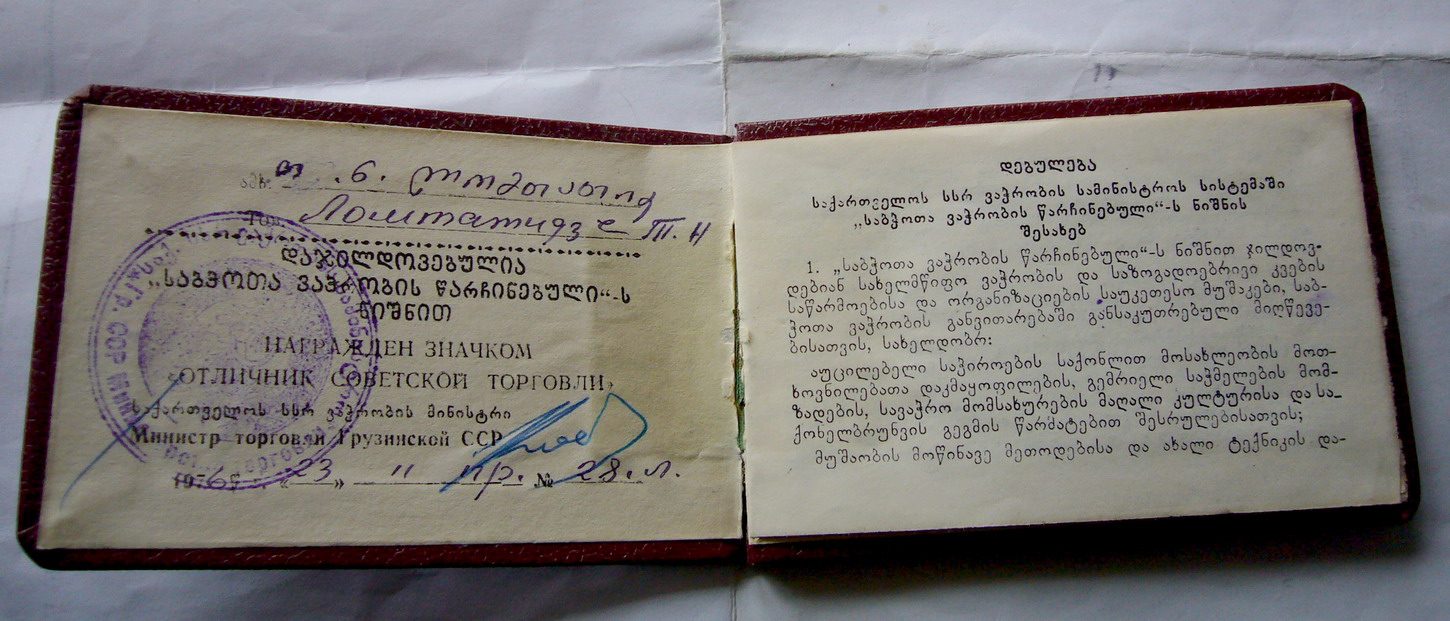 ამხ. თ. ნ. ლომთათიძე
Тов. Ломтатидзе Т. Н
დაჯილდოვებულია
„საბჭოთა ვაჭრობის წარჩინებული“-ს
ნიშნით
НАГРАЖДЕН ЗНАЧКОМ
«ОТЛИЧНИК СОВЕТСКОЙ ТОРГОВЛИ»
საქართველოს სსრ ვაჭრობის მინისტრი
Министр торговли Грузинской ССР
1976 г. «23» " пр. № 28. л.
დებულება
საქართველოს სსრ ვაჭრობის სამინისტროს სისტემაში
„საბჭოთა ვაჭრობის წარჩინებული“-ს ნიშნის
შესახებ
1. „საბჭოთა ვაჭრობის წარჩინებული“-ს ნიშნით ჯილდოვ-
დებიან სახელმწიფო ვაჭრობის და საზოგადოებრივი კვების
საწარმოებისა და ორგანიზაციების საუკეთესო მუშაკები, საბ-
ჭოთა ვაჭრობის განვითარებაში განსაკუთრებული მიღწევე-
ბისათვის, სახელდობრ:
აუცილებელი საჭიროების საქონლით მოსახლეობის მოთ-
ხოვნილებათა დაკმაყოფილების, გემრიელი საჭმელების მომ-
ზადების, სავაჭრო მომსახურების მაღალი კულტურისა და სა-
ქონელბრუნვის გეგმის წარმატებით შესრულებისათვის;
მუშაობის მოწინავე მეთოდებისა და ახალი ტექნიკის და-